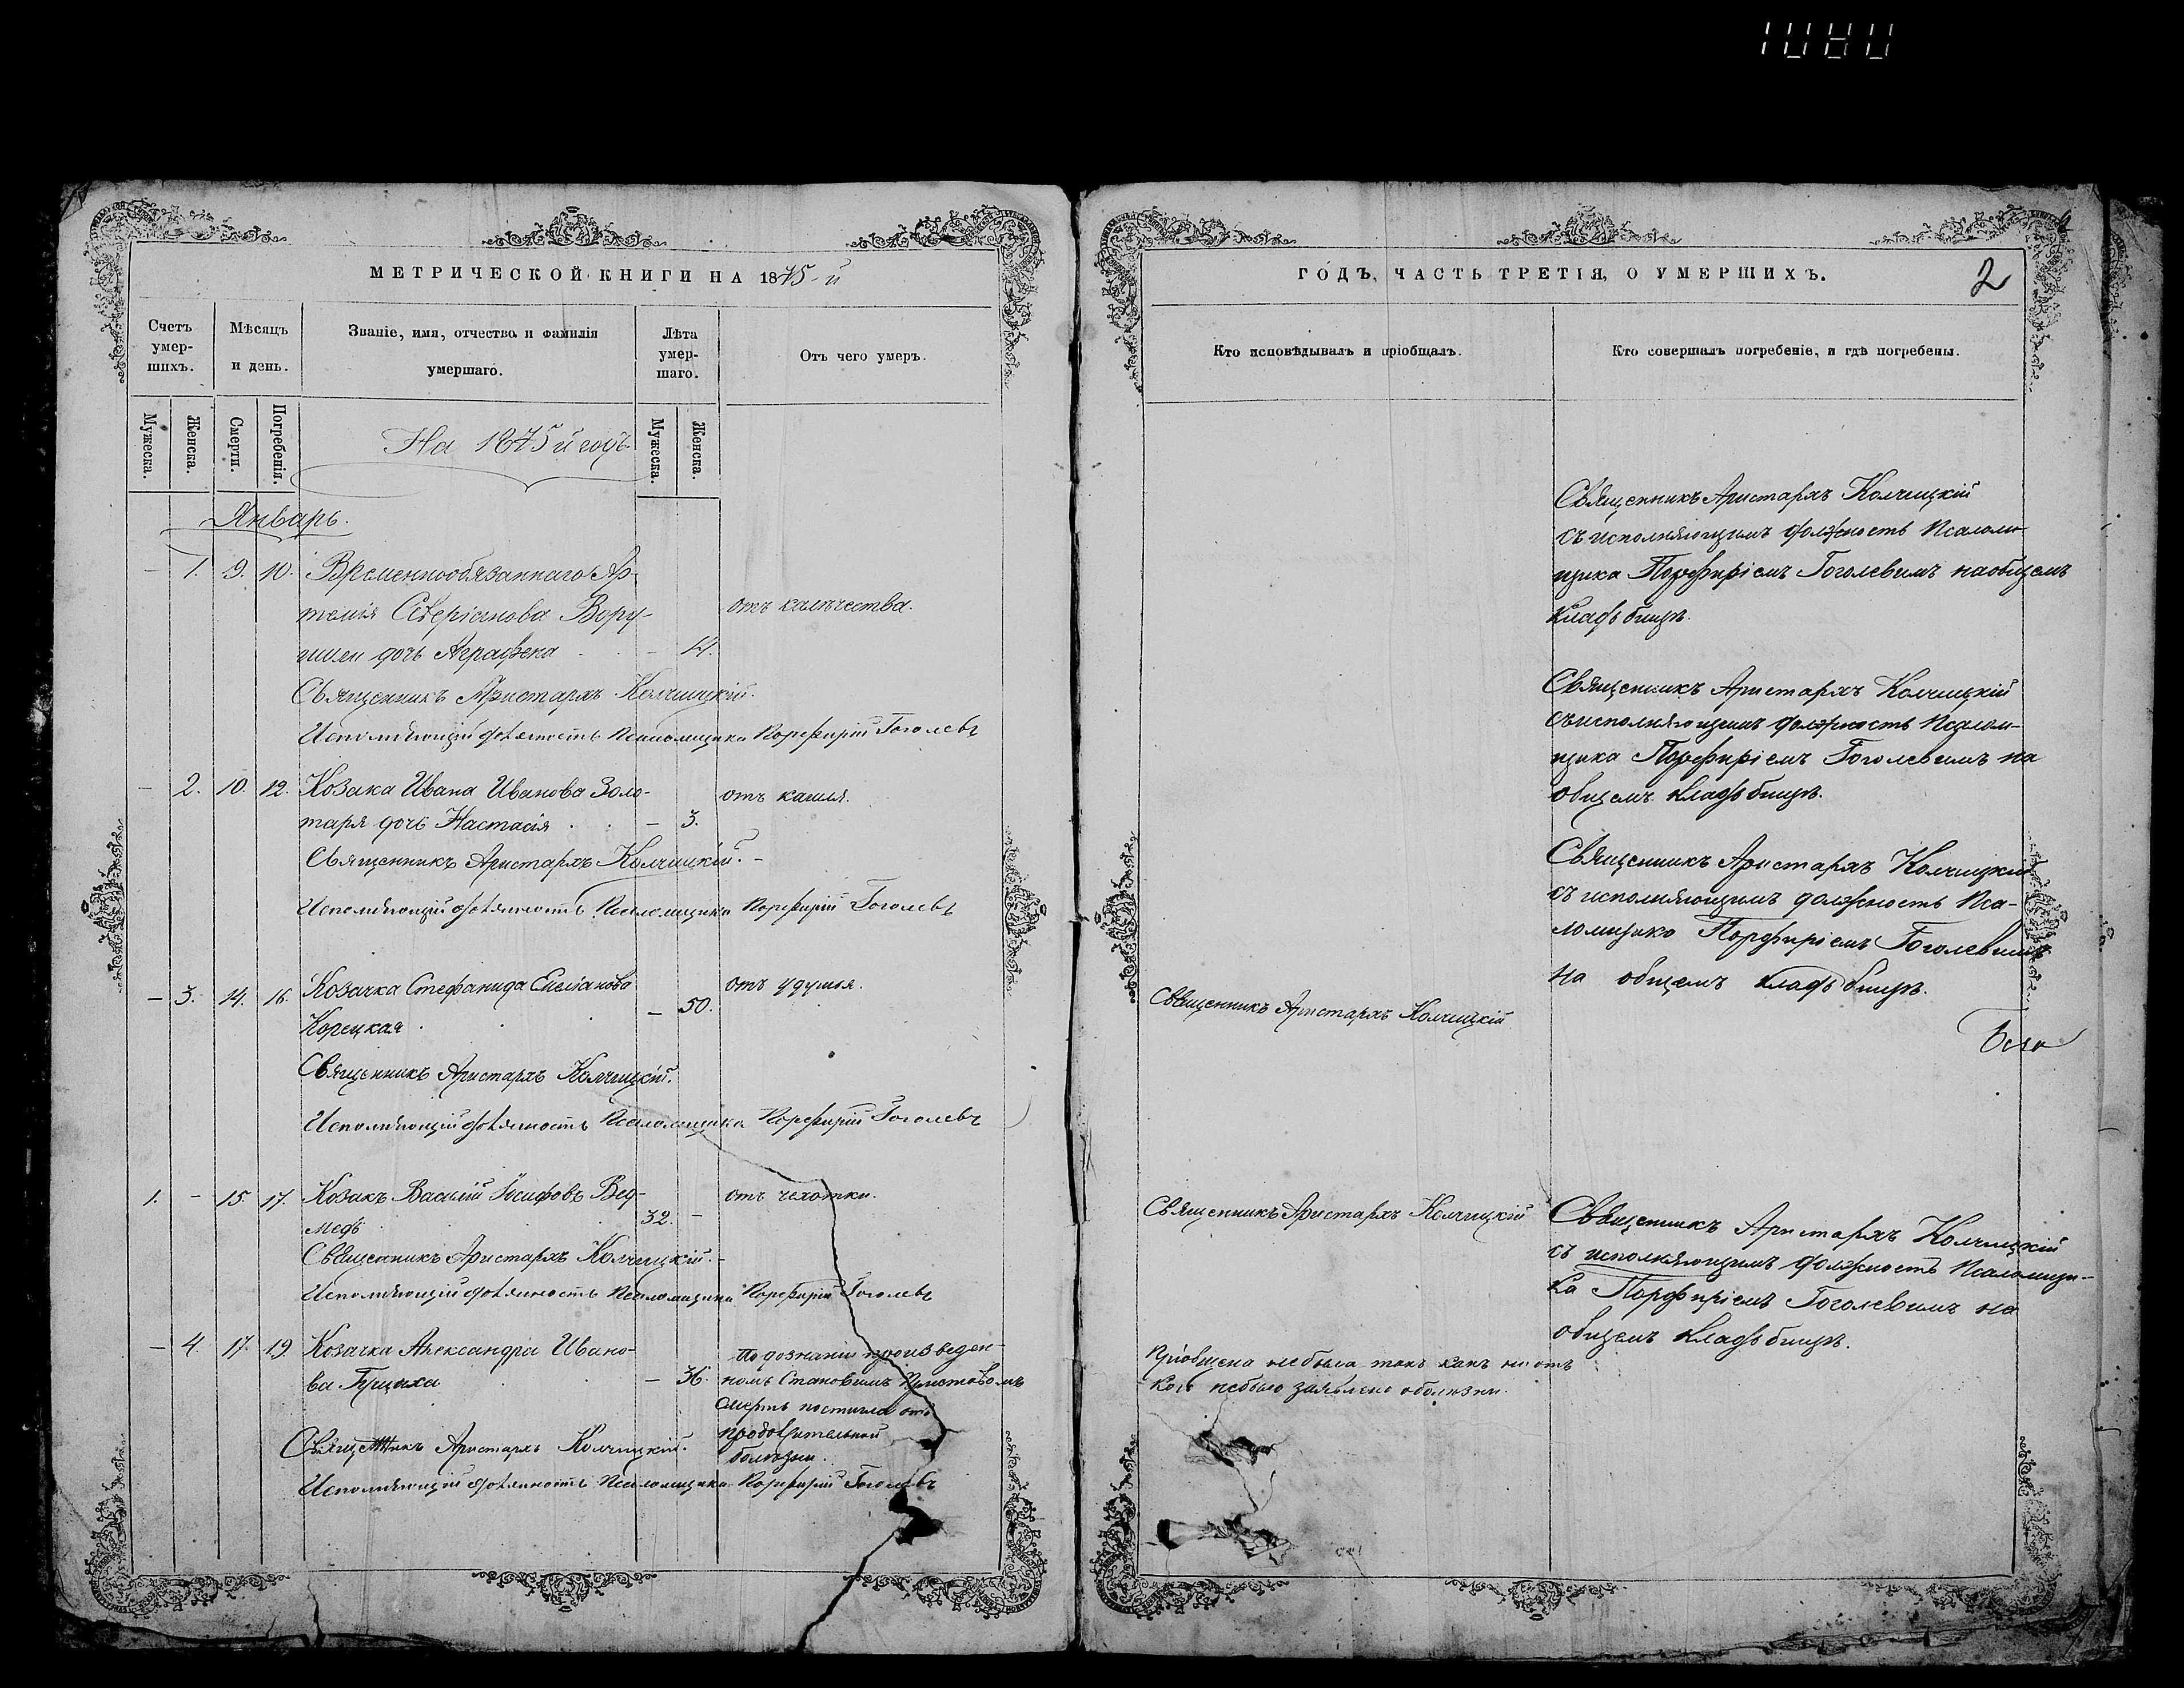 1080
МЕТРИЧЕСКОЙ КНИГИ НА 1875-й
Счетъ умер-шихъ.
Мѣсяцъ и день.
Званіе, имя, отчество и фамилія умершаго.
Лѣта умер-шаго.
Отъ чего умеръ.
Мужеска.
Женска.
Смерти.
Погребенія.
На 1875й годъ
Мужеска.
Женска.
Январь.
– 1. 9. 10. Временнообязаннаго Ар-
темія Севѣріанова Вору-
дочь Агрофена
отъ калѣчества.
Священникъ Аристархъ Колчицкій.
Исполняющій должность Псаломщика Порфирій Гоголевъ
– 2. 10. 12. Козака Ивана Иванова Золо-
отъ кашля.
таря дочь Настасія – 3.
Священникъ Аристархъ Колчицкій. –
Исполняющій должность Псаломщика Порфирій Гоголевъ
– 3. 14. 16. Козачка Стефанида Емеліанова
отъ удушья.
Корецкая – 50.
Священникъ Аристархъ Колчицкій.
Исполняющій должность Псаломщика Порфирій Гоголевъ
1. – 15. 17. Козакъ Василій Іосифовъ Вед-
отъ чехотки.
медь 32. –
Священникъ Аристархъ Колчицкій. –
Исполняющій должность Псаломщика Порфирій Гоголевъ
– 4. 17. 19. Козачка Александра Ивано-
По дознанію произведен-
ва – 36. номъ Становымъ Приставомъ
смерть постигла отъ
Священникъ Аристархъ Колчицкій.
болѣзни.
Исполняющій должность Псаломщика Порфирій Гоголевъ
ГОДЪ, ЧАСТЬ ТРЕТІЯ, О УМЕРШИХЪ.
2
Кто исповѣдывалъ и пріобщалъ.
Кто совершалъ погребеніе, и гдѣ погребены.
Священникъ Аристархъ Колчицкій
съ исполняющимъ должность Псалом-
щика Порфиріемъ Гоголевымъ на общемъ
кладьбищѣ.
Священникъ Аристархъ Колчицкій
съ исполняющимъ должность Псалом-
щика Порфиріемъ Гоголевымъ на
общемъ кладьбищѣ.
Священникъ Аристархъ Колчицкій
съ исполняющимъ должность Пса-
ломщика Порфиріемъ Гоголевымъ
на общемъ кладьбищѣ.
Священникъ Аристархъ Колчицкій
Священникъ Аристархъ Колчицкій
Священникъ Аристархъ Колчицкій
съ исполняющимъ должность Псаломщи-
ка Порфиріемъ Гоголевымъ на
общемъ кладьбищѣ.
Пріобщена не была такъ какъ ни отъ
кого небыло заявлено о болѣзни.